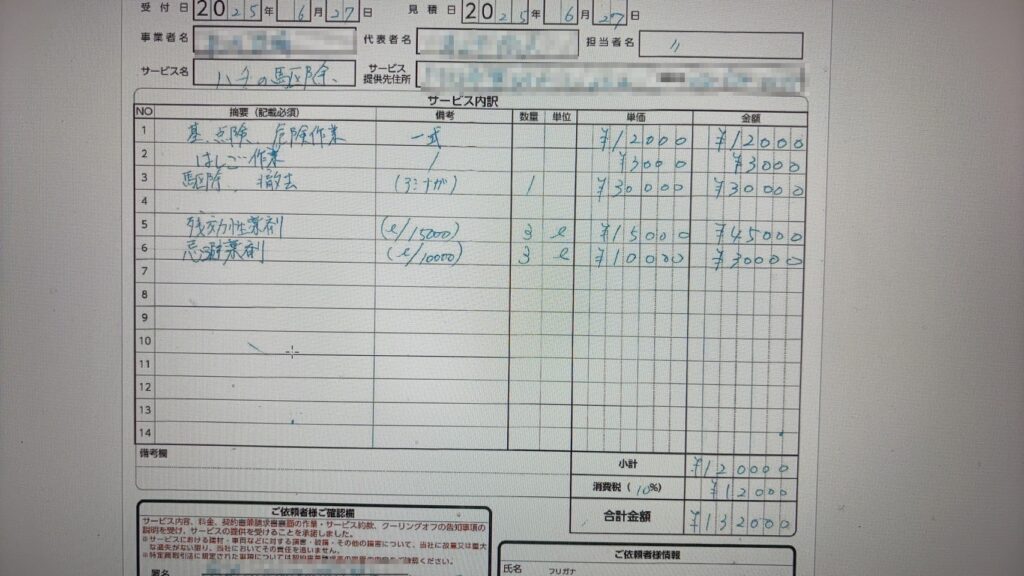 受付日 2025年 6月27日 見積日 2025年 6月27日
事業者名 代表者名 担当者名 〃
サービス名 ハチの駆除、 サービス提供先住所
サービス内訳
NO 摘要(記載必須) 備考 数量 単位 単価 金額
1 基、点険 危険作業 一式 ¥12000 ¥12000
2 はしご作業 / ¥3000 ¥3000
3 駆除、撤去 (アシナガ) 1 ¥30000 ¥30000
4
5 残効性薬剤 (ℓ/15000) 3 ℓ ¥15000 ¥45000
6 忌避薬剤 (ℓ/10000) 3 ℓ ¥10000 ¥30000
7
8
9
10
11
12
13
14
備考欄
小計 ¥120000
消費税(10%) ¥12000
合計金額 ¥132000
ご依頼者様ご確認欄
サービス内容、料金、契約書兼請求書裏面の作業・サービス約款、クーリングオフの告知事項の
説明を受け、サービスの提供を受けることを承諾しました。
※サービスにおける建材・車両などに対する損害・破損・その他の損害について、当社に故意又は重大
な過失がない限り、当社においてその責任を追いません。
署名
ご依頼者様情報
氏名 フリガナ